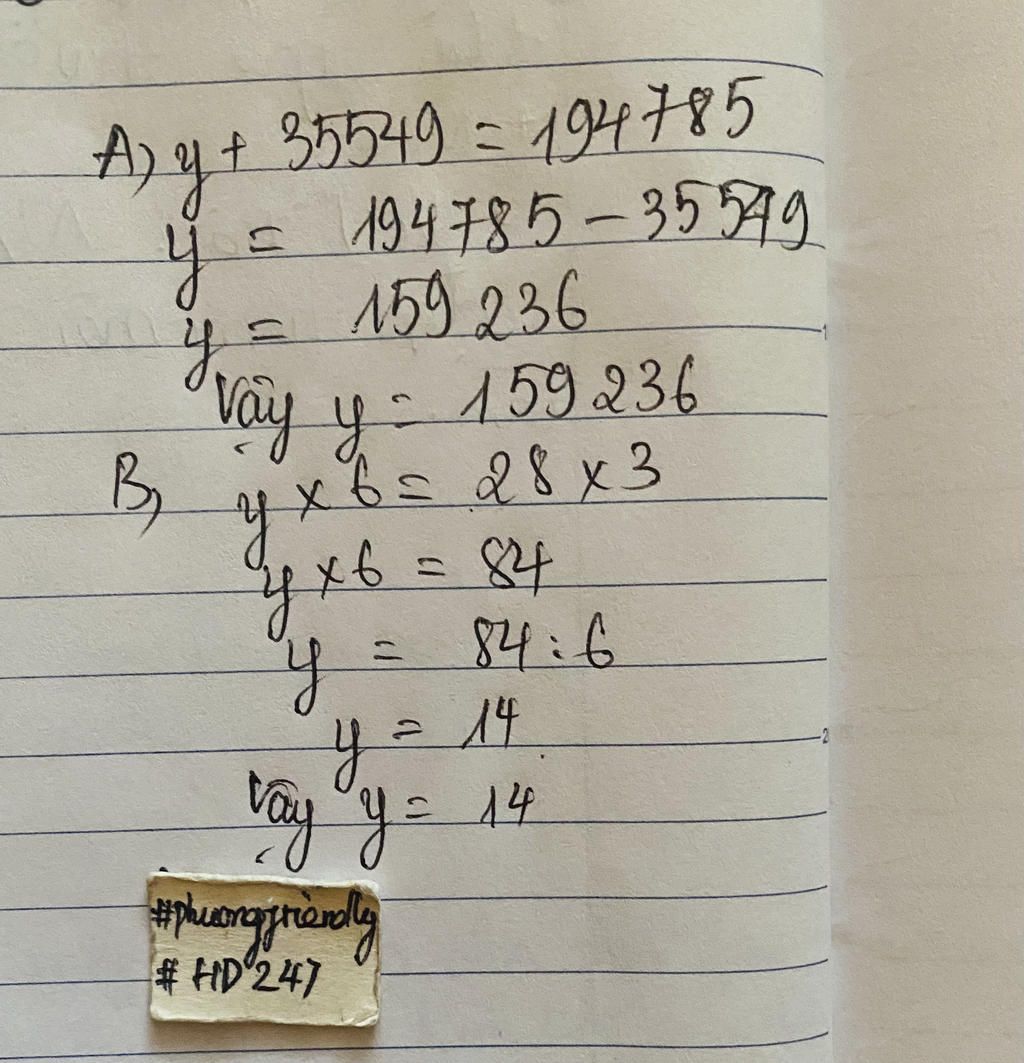 A) y + 35549 = 194785
y = 194785 - 35549
y = 159236
Vậy y = 159236
B) y x 6 = 28 x 3
y x 6 = 84
y = 84 : 6
y = 14
Vậy y = 14
#phuongfriendly
# HD 247